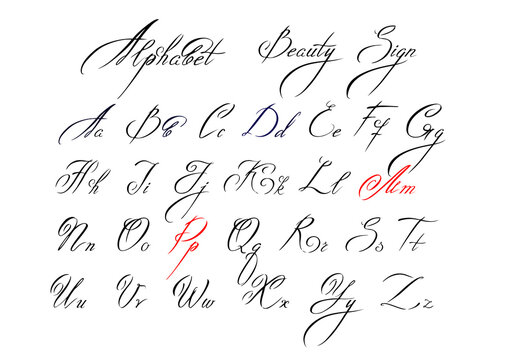 Alphabet Beauty Sign
Aa Bb Cc Dd Ee Ff Gg
Hh Ii Jj Kk Ll Mm
Nn Oo Pp Qq Rr Ss Tt
Uu Vv Ww Xx Yy Zz